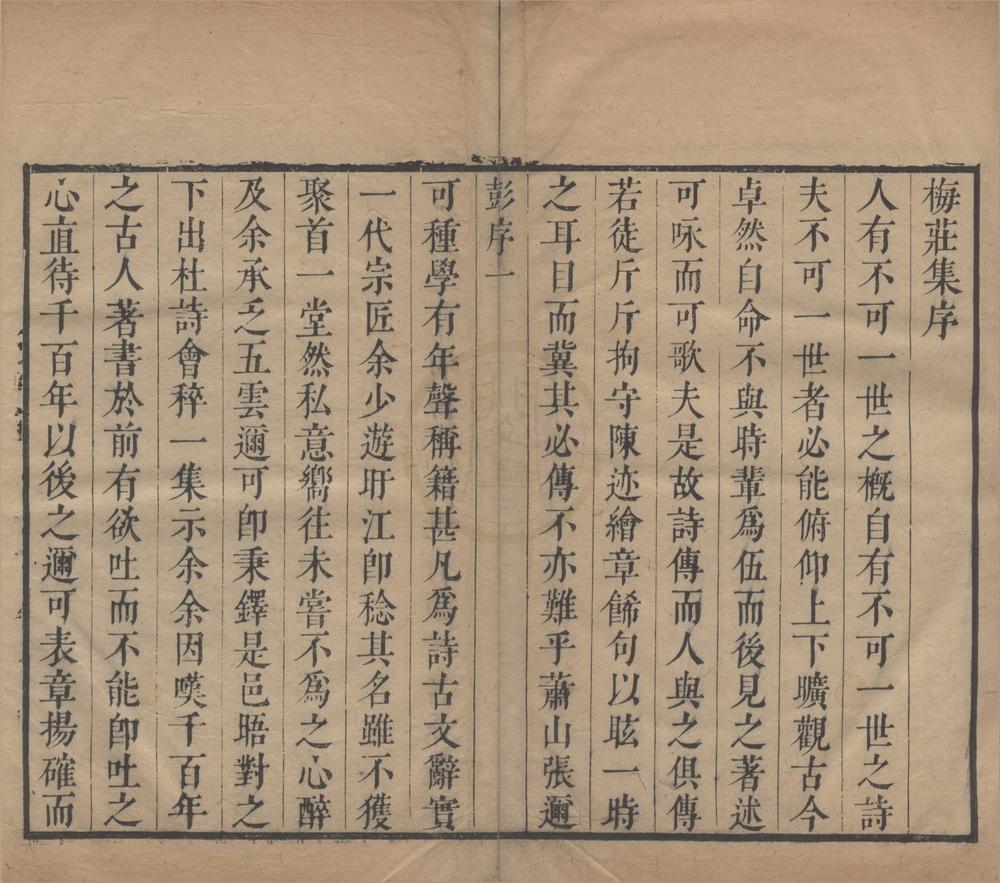 梅莊集序
人有不可一世之概自有不可一世之詩
夫不可一世者必能俯仰上下曠觀古今
卓然自命不與時輩爲伍而後見之著述
可咏而可歌夫是故詩傳而人與之俱傳
若徒斤斤拘守陳迹繪章餙句以眩一時
之耳目而冀其必傳不亦難乎蕭山張邇
彭序一
可種學有年聲稱籍甚凡爲詩古文辭實
一代宗匠余少遊盱江卽稔其名雖不獲
聚首一堂然私意嚮往未嘗不爲之心醉
及余承乏五雲邇可卽秉鐸是邑晤對之
下出杜詩會稡一集示余余因嘆千百年
之古人著書於前有欲吐而不能卽吐之
心直待千百年以後之邇可表章揚確而